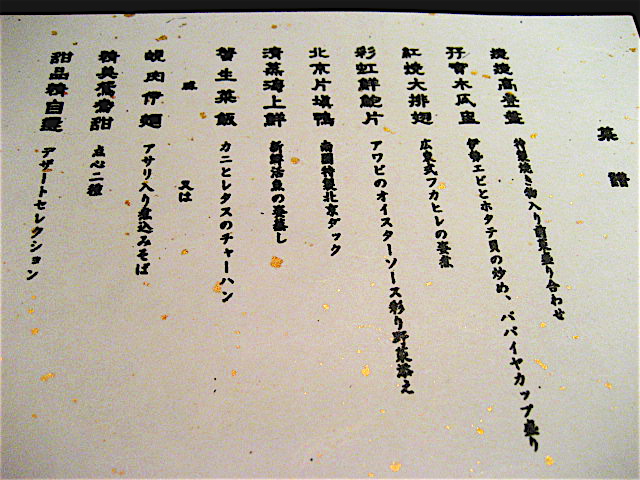 菜譜
步步高登盤
特製焼き物入り前菜盛り合わせ
木瓜盅
伊勢エビとホタテ貝の炒め、パパイヤカップ盛り
紅焼大排翅
広東式フカヒレの姿煮
彩虹鮮鮑片
アワビのオイスターソース彩り野菜添え
北京片填鴨
南園特製北京ダック
清蒸海上鮮
新鮮活魚の姿蒸し
蟹生菜飯
カニとレタスのチャーハン
或
又は
蜆肉伊麺
アサリ入り煮込みそば
精美蕉香甜
点心二種
甜品精自選
デザートセレクション